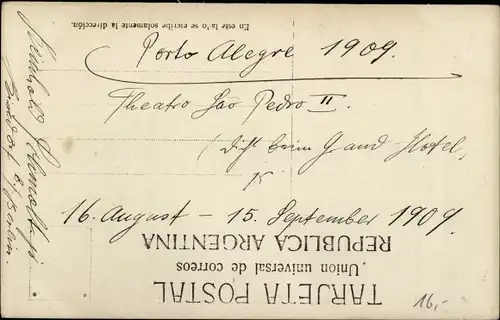 Porto Alegre 1909.
Theatro Sao Pedro II.
(Dicht beim Grand-Hotel,
16. August – 15. September 1909.
Reinhold
b/Berlin.
En este lado se escribe solamente la dirección.
TARJETA POSTAL
Union universal de correos.
REPUBLICA ARGENTINA
16,-